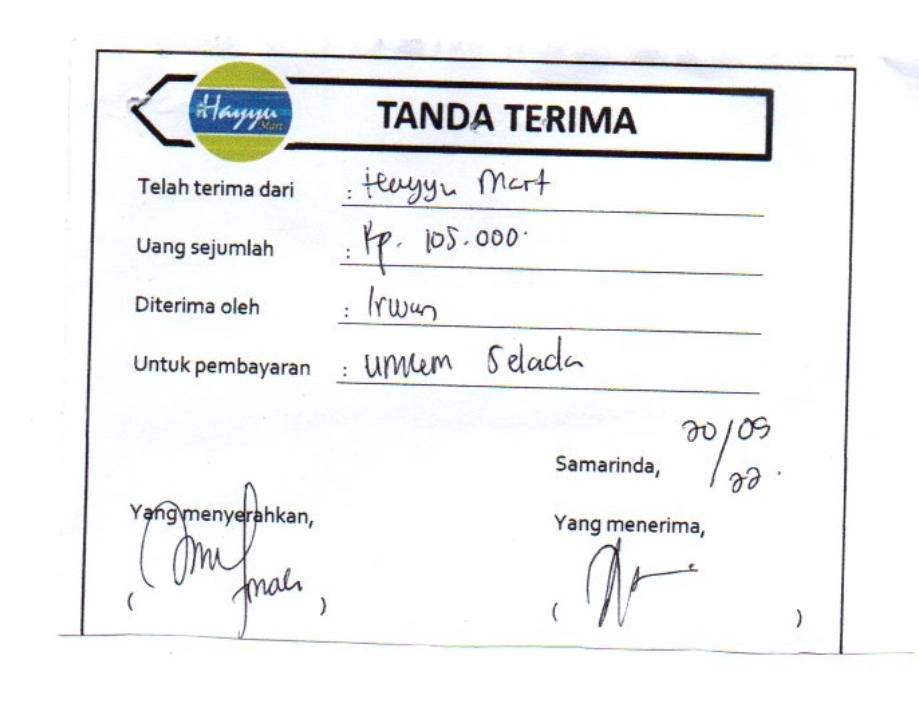 Hayyu
Mart
TANDA TERIMA
Telah terima dari : Hayyu Mart
Uang sejumlah : Rp. 105.000
Diterima oleh : Irwan
Untuk pembayaran : umkm Selada
Samarinda, 20/09/22.
Yang menyerahkan,
Yang menerima,
( )
( )